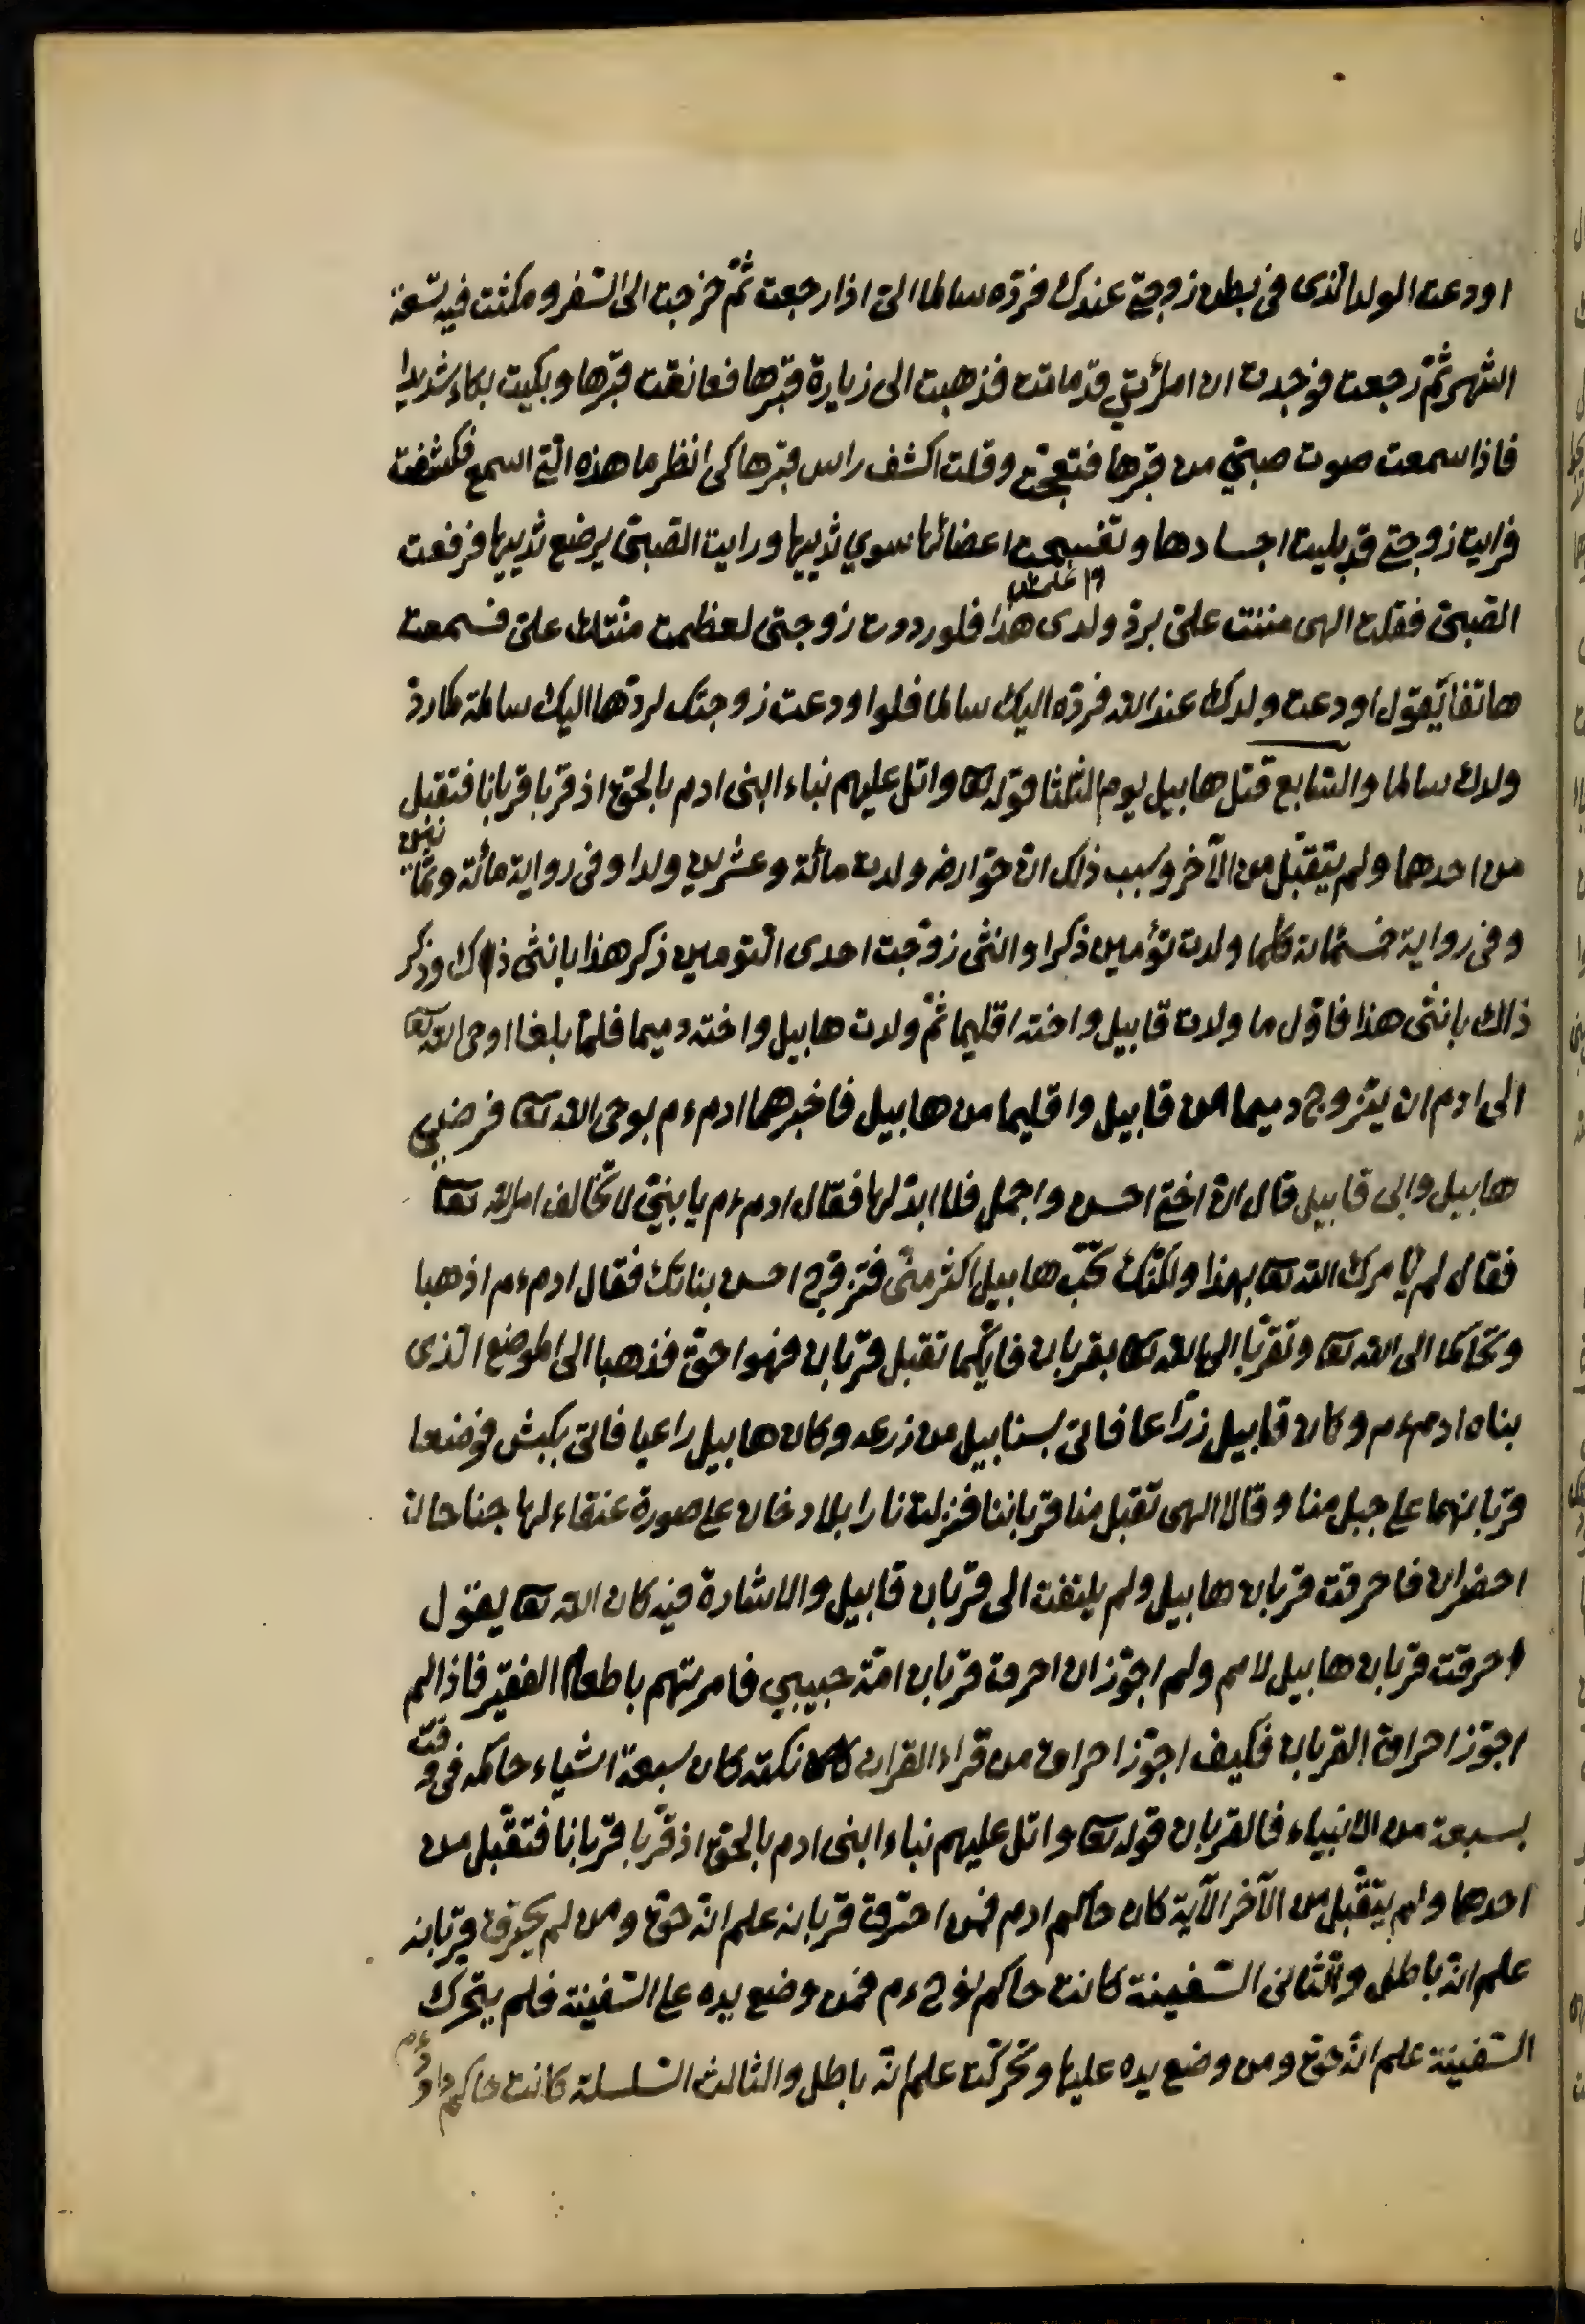 اودعت الولد الذى فى بطن زوجتى عندك فردّه سالما الىّ اذا رجعت ثمّ خرجت الى السّفر ومكثت فيه تسعة
اشهر ثمّ رجعت فوجدت ان امرأتى قد ماتت فذهبت الى زيارة قبرها فعانقت قبرها وبكيت بكاء شديدا
فاذا سمعت صوت صبىّ من قبرها فتعجّبت وقلت اكشف راس قبرها كى انظر ما هذه التى اسمع فكشفت
فرايت زوجتى قد بليت اجسادها وتفسّحت اعضائها سوي ثدييها ورايت الصّبىّ يرضع ثدييها فرفعت
الصّبىّ فقلت الهى مننت علىّ بردّ ولدى هذا فلو رددت زوجتى لعظمت منّتك علىّ فسمعت
هاتفا يقول اودعت ولدك عند الله فردّه اليك سالما فلو اودعت زوجتك لردّها اليك سالمة كما ردّ
ولدك سالما والسّابع قتل هابيل يوم الثلثا قوله تعا واتل عليهم نباء ابنى ادم بالحق اذ قربا قربانا فتقبل
من احدهما ولم يتقبّل من الآخر وسبب ذلك انّ حوّا رض ولدت مائة وعشرين ولدا وفى رواية مائة وثمانين
وفى رواية خمسمائة كلّما ولدت تؤمين ذكرا وانثى زوّجت احدى التّومين ذكر هذا بانثى ذاك وذكر
ذاك بانثى هذا فاوّل ما ولدت قابيل واخته اقليما ثمّ ولدت هابيل واخته دميما فلمّا بلغا اوحى الله تعا
الى ادم ان يتزوج دميما من قابيل واقليما من هابيل فاخبرهما ادم ءم بوحى الله تعا فرضى
هابيل وابى قابيل قال انّ اختى احسن واجمل فلا ابدلها فقال ادم ءم يا بنىّ لا تخالف امر الله تعا
فقال لم يامرك الله تعا بهذا ولكنّك تحبّ هابيل اكثر منّى فتزوّج احسن بناتك فقال ادم ءم اذهبا
وتحاكما الى الله تعا وتقرّبا الى الله تعا بقربان فايّكما تقبل قربان فهو احقّ فذهبا الى الموضع الذى
بناه ادم ءم وكان قابيل زرّاعا فاتى بسنابيل من زرعه وكان هابيل راعيا فاتى بكبش فوضعا
قربانهما على جبل منا وقالا الهى تقبل منا قرباننا فنزلت نارا بلا دخان على صورة عنقاء لها جناحان
اخضران فاحرقت قربان هابيل ولم يلتفت الى قربان قابيل والاشارة فيه كان الله تعا يقول
احرقت قربان هابيل لامم ولم اجوّز ان احرق قربان امّة حبيبي فامرتهم باطعام الفقير فاذا لم
اجوّز احراق القربان فكيف اجوّز احراق من قراء القران نكته كان سبعة اشياء حاكمه فى وقت
بسبعة من الانبياء فالقربان قوله تعا واتل عليهم نباء ابنى ادم بالحق اذ قربا قربانا فتقبّل من
احدهما ولم يتقبّل من الآخر الآية كان حاكم ادم فمن احترق قربانه علم انه حق ومن لم يحرق قربانه
علم انه باطل والثانى السّفينة كانت حاكم نوح ءم فمن وضع يده على السّفينة فلم يتحرك
السّفينة علم انه حق ومن وضع يده عليها وتحركت علم انه باطل والثالث السّلسلة كانت حاكم داود ءم